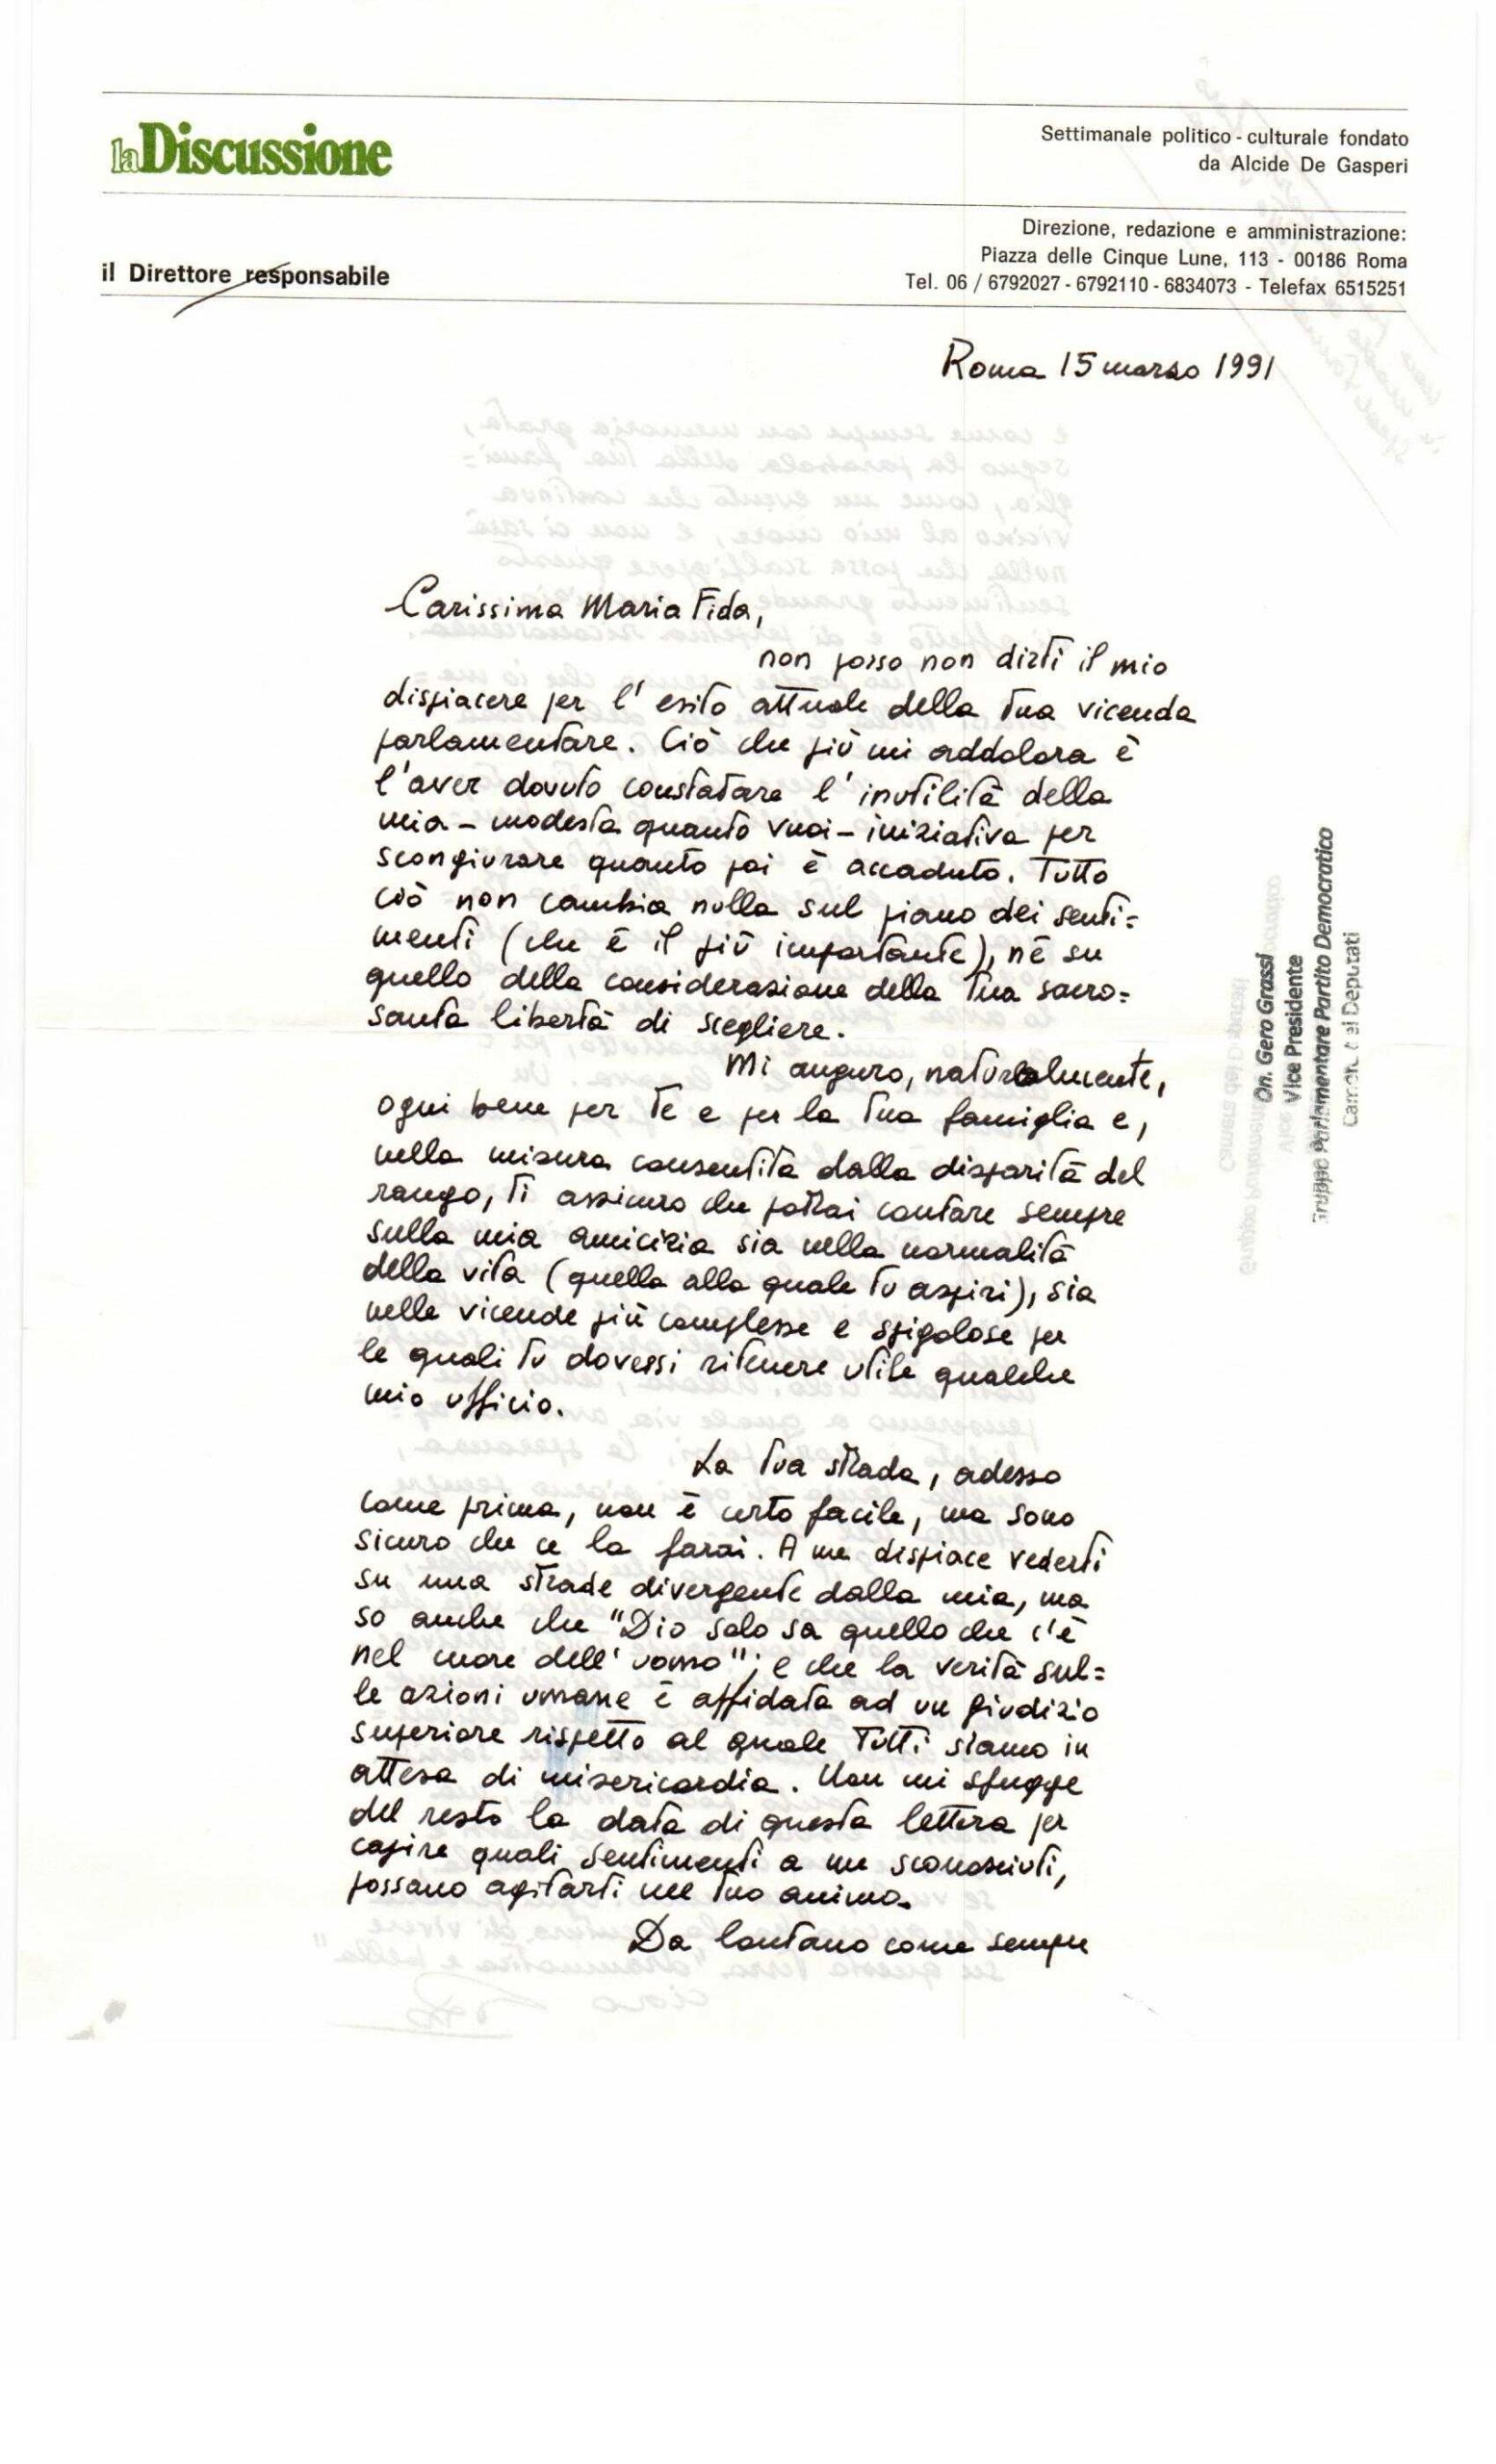 la Discussione
Settimanale politico - culturale fondato
da Alcide De Gasperi
il Direttore responsabile
Direzione, redazione e amministrazione:
Piazza delle Cinque Lune, 113 - 00186 Roma
Tel. 06 / 6792027 - 6792110 - 6834073 - Telefax 6515251
Roma 15 marzo 1991
Carissima Maria Fida,
non posso non dirti il mio
dispiacere per l'esito attuale della tua vicenda
parlamentare. Ciò che più mi addolora è
l'aver dovuto constatare l'inutilità della
mia - modesta quanto vuoi - iniziativa per
scongiurare quanto poi è accaduto. Tutto
ciò non cambia nulla sul piano dei senti=
menti (che è il più importante), né su
quello della considerazione della tua sacro=
santa libertà di scegliere.
Mi auguro, naturalmente,
ogni bene per te e per la tua famiglia e,
nella misura consentita dalla disparità del
rango, ti assicuro che potrai contare sempre
sulla mia amicizia sia nella normalità
della vita (quella alla quale tu aspiri), sia
nelle vicende più complesse e spigolose per
le quali tu dovessi ritenere utile qualche
mio ufficio.
La tua strada, adesso
come prima, non è certo facile, ma sono
sicuro che ce la farai. A me dispiace vederti
su una strada divergente dalla mia, ma
so anche che "Dio solo sa quello che c'è
nel cuore dell'uomo"; e che la verità sul=
le azioni umane è affidata ad un giudizio
superiore rispetto al quale tutti siamo in
attesa di misericordia. Non mi sfugge
del resto la data di questa lettera per
capire quali sentimenti a me sconosciuti,
possano agitarti nel tuo animo.
Da lontano come sempre
On. Gero Grassi
Vice Presidente
Gruppo Parlamentare Partito Democratico
Camera dei Deputati